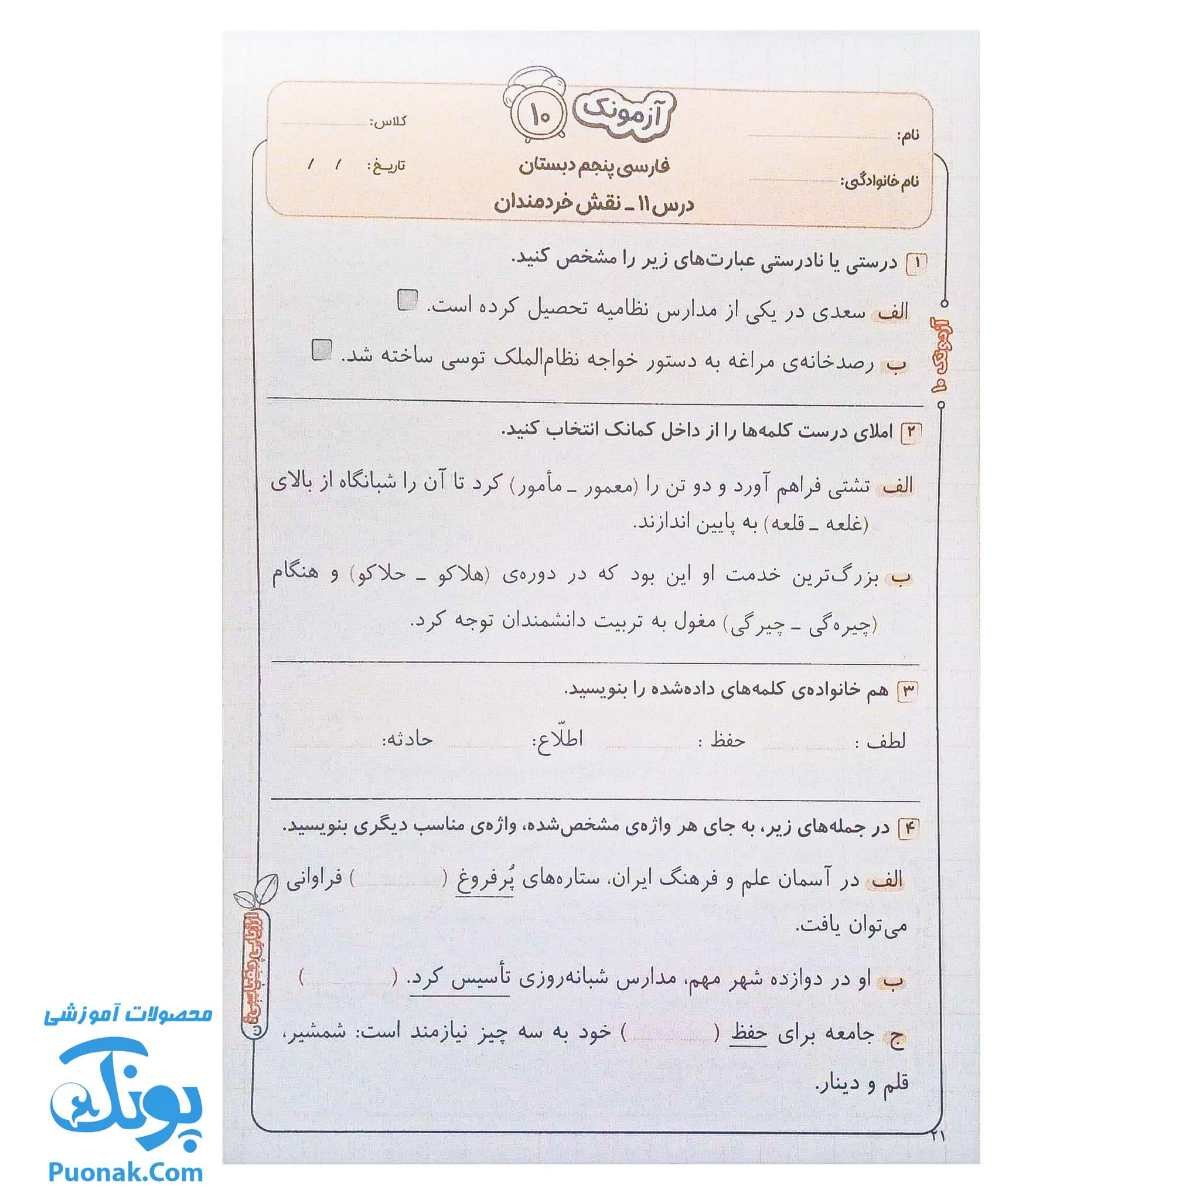 آزمونک ۱۰
نام:
کلاس:
فارسی پنجم دبستان
نام خانوادگی:
تاریخ: / /
درس ۱۱ ـ نقش خردمندان
۱ درستی یا نادرستی عبارت‌های زیر را مشخص کنید.
الف سعدی در یکی از مدارس نظامیه تحصیل کرده است.
ب رصدخانه‌ی مراغه به دستور خواجه نظام‌الملک توسی ساخته شد.
آزمونک ۱۰
۲ املای درست کلمه‌ها را از داخل کمانک انتخاب کنید.
الف تشتی فراهم آورد و دو تن را (معمور ـ مأمور) کرد تا آن را شبانگاه از بالای
(غلعه ـ قلعه) به پایین اندازند.
ب بزرگ‌ترین خدمت او این بود که در دوره‌ی (هلاکو ـ حلاکو) و هنگام
(چیره‌گی ـ چیرگی) مغول به تربیت دانشمندان توجه کرد.
۳ هم خانواده‌ی کلمه‌های داده‌شده را بنویسید.
لطف : حفظ : اطلّاع: حادثه:
۴ در جمله‌های زیر، به جای هر واژه‌ی مشخص‌شده، واژه‌ی مناسب دیگری بنویسید.
الف در آسمان علم و فرهنگ ایران، ستاره‌های پُرفروغ ( ) فراوانی
می‌توان یافت.
ب او در دوازده شهر مهم، مدارس شبانه‌روزی تأسیس کرد. ( )
ج جامعه برای حفظ ( ) خود به سه چیز نیازمند است: شمشیر،
قلم و دینار.
۲۱
محصولات آموزشی
پونک
Puonak.Com